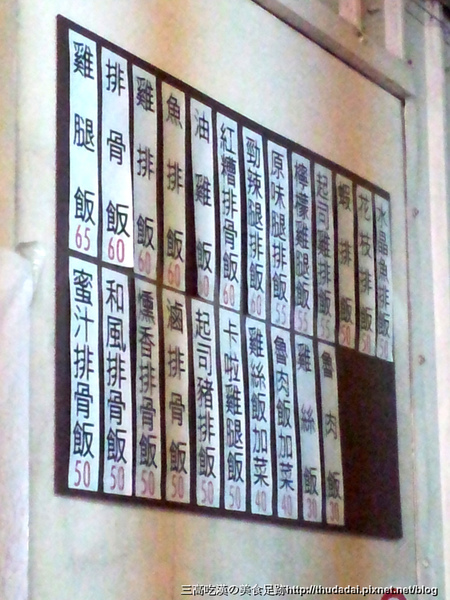 雞腿飯65
排骨飯60
雞排飯60
魚排飯60
油雞飯60
紅糟排骨飯60
勁辣腿排飯60
原味腿排飯55
檸檬雞腿飯55
起司雞排飯55
蝦排飯50
花枝排飯50
水晶魚排飯50
蜜汁排骨飯50
和風排骨飯50
燻香排骨飯50
滷排骨飯50
起司豬排飯50
卡啦雞腿飯50
雞絲飯加菜40
魯肉飯加菜40
雞絲飯30
魯肉飯30
三高吃漢の美食足跡http://thudadai.pixnet.net/blog